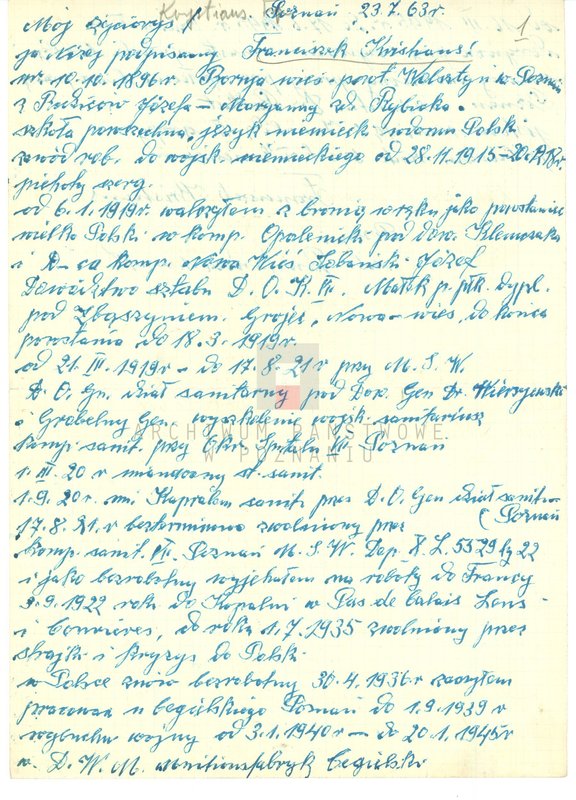 Krystians
Poznań 23.7.63r.
1
Mój życiorys!
ja niżej podpisany Franciszek Kristians!
ur. 10.10.1896r. wieś pow. w Poznań
z Rodziców Józefa – Maryanny zd. Rybicka.
szkoła powszechna, język niemiecki w domu Polski
zawód rob. do wojsk. niemieckiego od 28.11.1915 –
piechoty szerg.
od 6.1.1919r. walczyłem z bronią w ręku jako powstaniec
wielko Polski w komp. Opalenicki pod dow. Klemczaka
i D-ca komp. Nowa Wieś Józef
Dowództwo sztabu D.O.K. VII. p. płk. dypl.
pod Zbąszyniem. Grójec, Nowa-wieś, do końca
powstania do 18.3.1919r.
od 21. III 1919r – do 17.8.21r przy M.S.W.
D.O.Gn. dział sanitarny pod Dow. Gen Dr. Wierzejewski
i Grobelny Gen. wyszkolenie wojsk sanitariusz
komp sanit. przy Okr. Szpitalu VII Poznań
1. III. 20 r mianowany st. sanit.
1.9.20r. mi Kaprálem sanit. przez D.O.Gen dział sanit.
(Poznań
17.8.21.r bezterminowo zwolniony przez
komp. sanit. VII. Poznań M.S.W. Dep. X. L. 5529
i jako bezrobotny wyjechałem na roboty do Francy
9.9.1922 roku do Kopalni w Pas de Calais Lens-
i, do roku 1.7.1935 zwolniony przez
strajki i kryzys do Polski
w Polsce znów bezrobotny 30.4.1936r zacząłem
pracować u Cegielskiego Poznań do 1.9.1939r
wybuchu wojny od 3.1.1940r – do 20.1.1945r
w. D.W.M. Monitionsfabryk Cegielski
ARCHIWUM PAŃSTWOWE
W POZNANIU